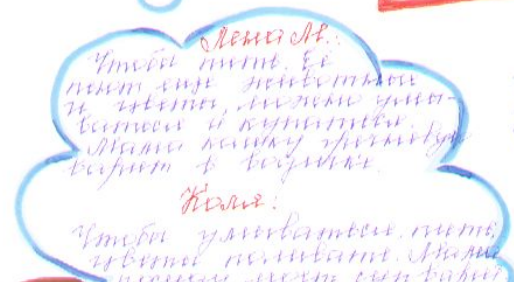 Лена М.:
Чтобы пить. Её
пьют ещё животные
и цветы, можно умы-
ваться и купаться.
Мама кашку гречневую
варит в водичке.
Коля:
Чтобы умываться, пить,
цветы поливать. Мама
посуду моет, суп варит